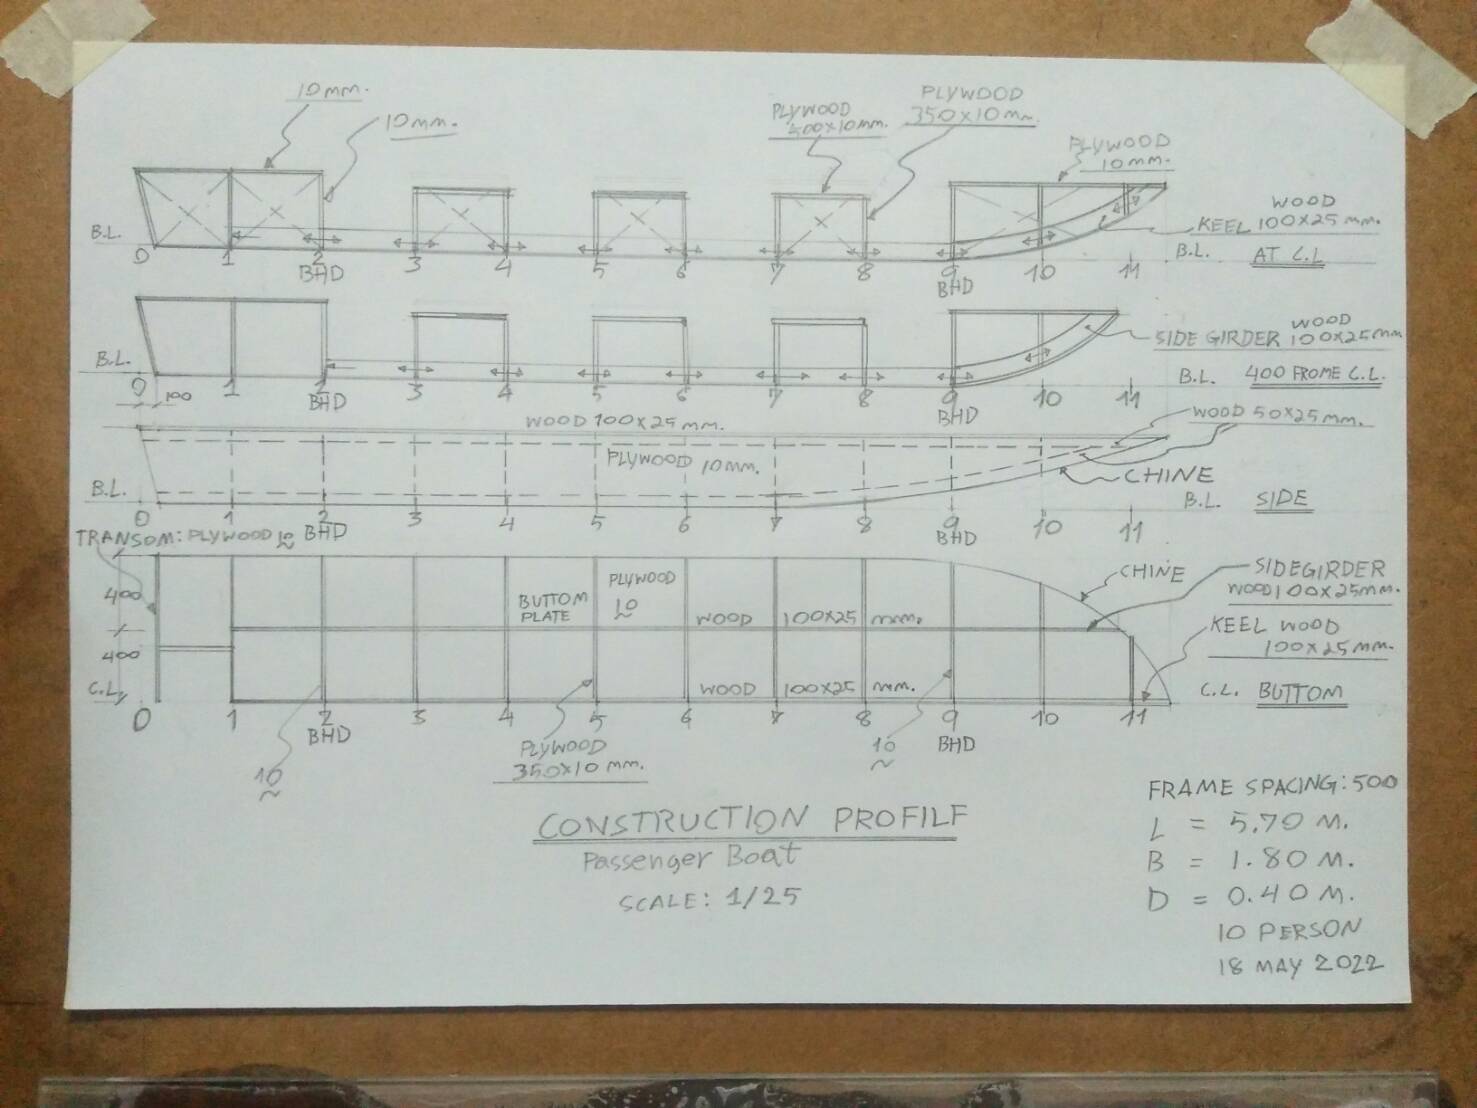 10 mm.
10 mm.
PLYWOOD
400X10 mm.
PLYWOOD
350X10 mm.
PLYWOOD
10 mm.
WOOD
KEEL 100X25 mm.
B.L.
B.L. AT C.L
0 1 2 3 4 5 6 7 8 9 10 11
BHD BHD
WOOD
SIDE GIRDER 100X25 mm.
B.L.
B.L. 400 FROME C.L.
0 1 2 3 4 5 6 7 8 9 10 11
100 BHD BHD
WOOD 100X25 mm.
WOOD 50X25 mm.
PLYWOOD 10 mm.
CHINE
B.L.
B.L. SIDE
0 1 2 3 4 5 6 7 8 9 10 11
BHD BHD
TRANSOM: PLYWOOD 10
400
400
C.L.
BUTTOM
PLATE
PLYWOOD
10
WOOD 100X25 mm.
WOOD 100X25 mm.
CHINE
SIDE GIRDER
WOOD 100X25 mm.
KEEL WOOD
100X25 mm.
C.L. BUTTOM
0 1 2 3 4 5 6 7 8 9 10 11
BHD BHD
10
PLYWOOD
350X10 mm.
10
CONSTRUCTION PROFILE
Passenger Boat
SCALE: 1/25
FRAME SPACING: 500
L = 5.70 M.
B = 1.80 M.
D = 0.40 M.
10 PERSON
18 MAY 2022